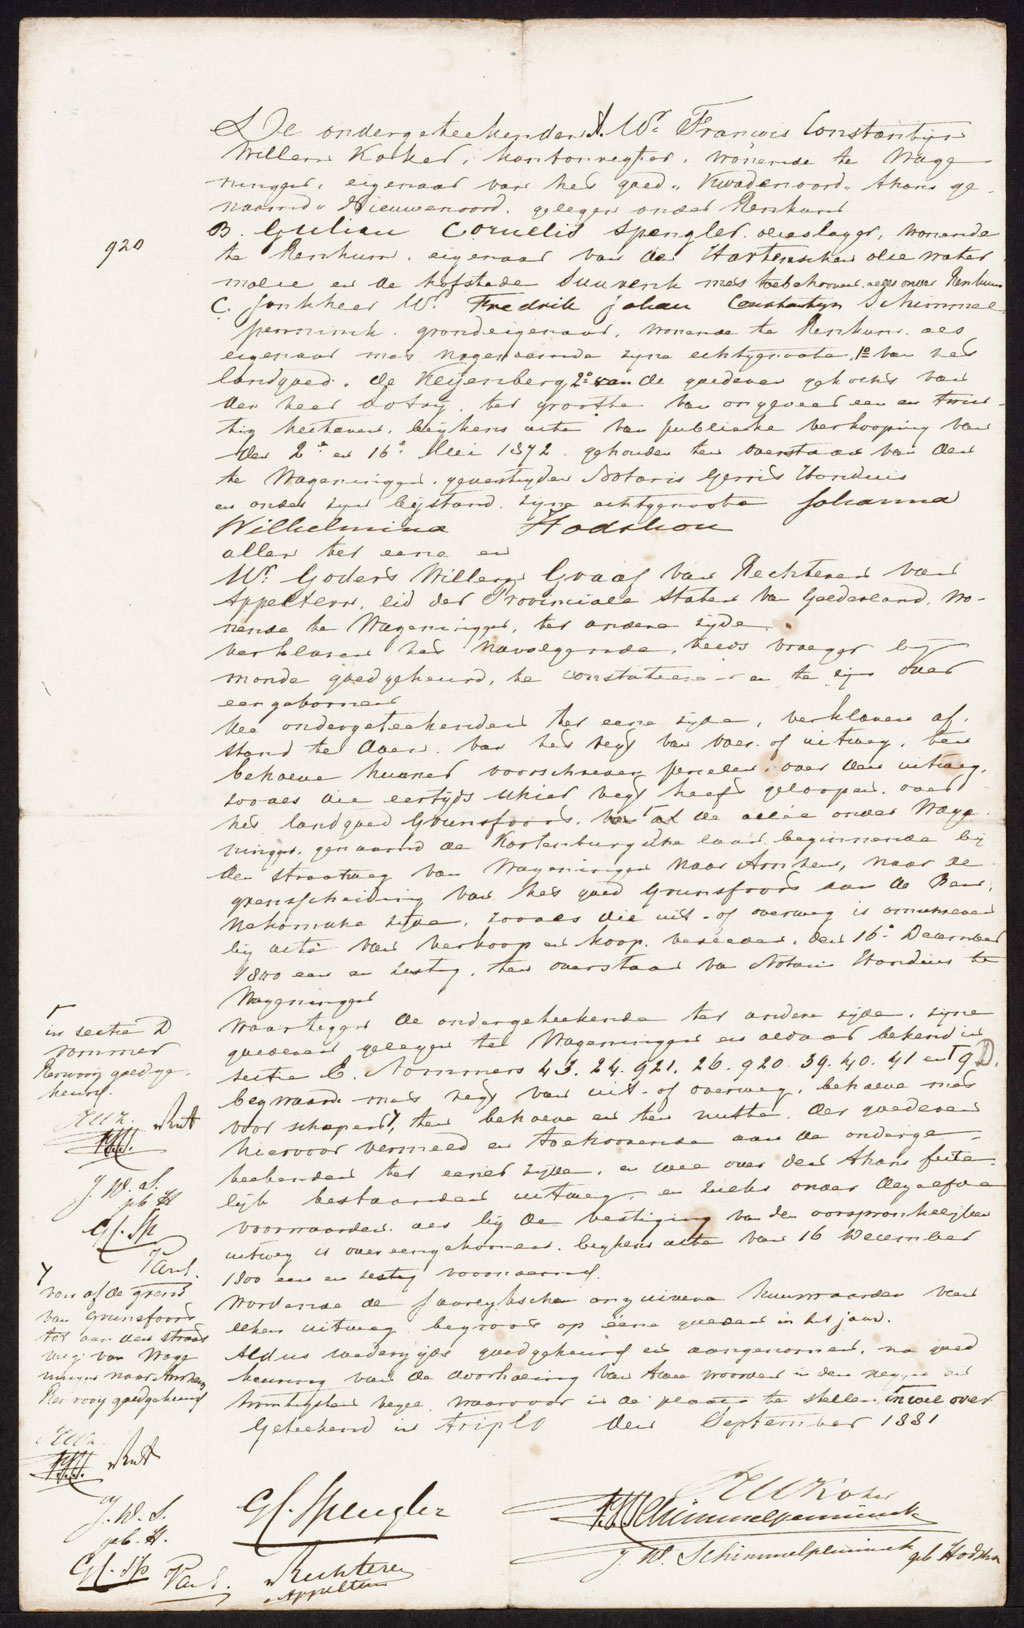 De ondergeteekenden A. Mr. Francois Constantijn
Willem Kolker, kantonregter, wonende te Wage
ningen, eigenaar van het goed "Kwadenoord" thans ge-
naamd "Nieuwenoord", gelegen onder Renkum
920
B. Gulian Cornelis Spengler, olieslager, wonende
te Renkum, eigenaar van de Hartensche olie water
molen en de hofstede met toebehooren, onder Renkum
C. Jonkheer Mr. Fredrik Johan Constantijn Schimmel
penninck, grondeigenaar, wonende te Renkum, als
eigenaar met nagenoemde zijne echtgenoote, 1o van het
landgoed "de Keijenberg" 2o van de goederen gekocht van
den heer ter grootte van ongeveer een en twin-
tig hectaren, blijkens acte van publieke verkooping van
den 2e en 16e Mei 1872 gehouden ten overstaan van den
te Wageningen gevestigden Notaris Gerrit Hondius
en onder zijn bijstand zijne echtgenoote Johanna
Wilhelmina Hodshon
allen ter eene en
Mr. Godert Willem Graaf van Rechteren van
Appeltern, lid der Provinciale Staten van Gelderland, wo-
nende te Wageningen, ter andere zijde.
verklaren het navolgende, reeds vroeger bij
monde goedgekeurd, te constateeren en te zijn over
eengekomen
De ondergeteekenden ter eene zijde, verklaren af-
stand te doen van het regt van over- of uitweg, ten
behoeve hunner voorschreven perceelen, over den uitweg,
zooals die eertijds alhier regt heeft geloopen over
het landgoed Grunsfoort, van af de allée onder Wage
ningen, genaamd de Kortenburgsche laan beginnende bij
den straatweg van Wageningen naar Arnhem, naar de
grensscheiding van het goed Grunsfoort aan de Ben-
nekomsche zijde, zooals die uit- of overweg is omschreven
bij acte van verkoop en koop, verleden den 16e December
1800 een en zestig, ten overstaan van Notaris Hondius te
Wageningen
waartegen de ondergeteekende ter andere zijde, zijne
goederen gelegen te Wageningen en aldaar bekend in
sectie C. Nommers 43. 24. 921. 26. 920. 39. 40. 41 en 9 D.
bezwaard met regt van uit- of overweg, behoeve met
voor schapen, ten behoeve en ten nutte der goederen
hiervoor vermeld en toekomende aan de onderge-
teekenden ter eener zijde, en wel over den thans feite-
lijk bestaanden uitweg, en zulks onder dezelfde
voorwaarden als bij de vestiging van den oorspronkelijken
uitweg is overeengekomen, blijkens acte van 16 December
1800 een en zestig voornoemd.
Wordende de jaarlijksche onzuivere huurwaarde van
elken uitweg begroot op ééne gulden in het jaar.
Aldus wederzijds goedgekeurd en aangenomen, na goed
keuring van de doorhaling van twee woorden in den negen en
twintigsten regel, waarvoor in de plaats te stellen "en wel over"
Geteekend in triplo den September 1881
in sectie D
nommer
Renvooij goedge-
keurd.
J. W. S.
geb. H
G.C. Sp
van af de grens
van Grunsfoort
tot aan den straat
weg van Wage
ningen naar Arnhem
Renvooij goedgekeurd
J. W. S.
geb. H.
G.C. Sp
G.C. Spengler
Rechteren
Appeltern
FCWKolker
F.J.C. Schimmelpenninck
J. W. Schimmelpenninck geb Hodshon